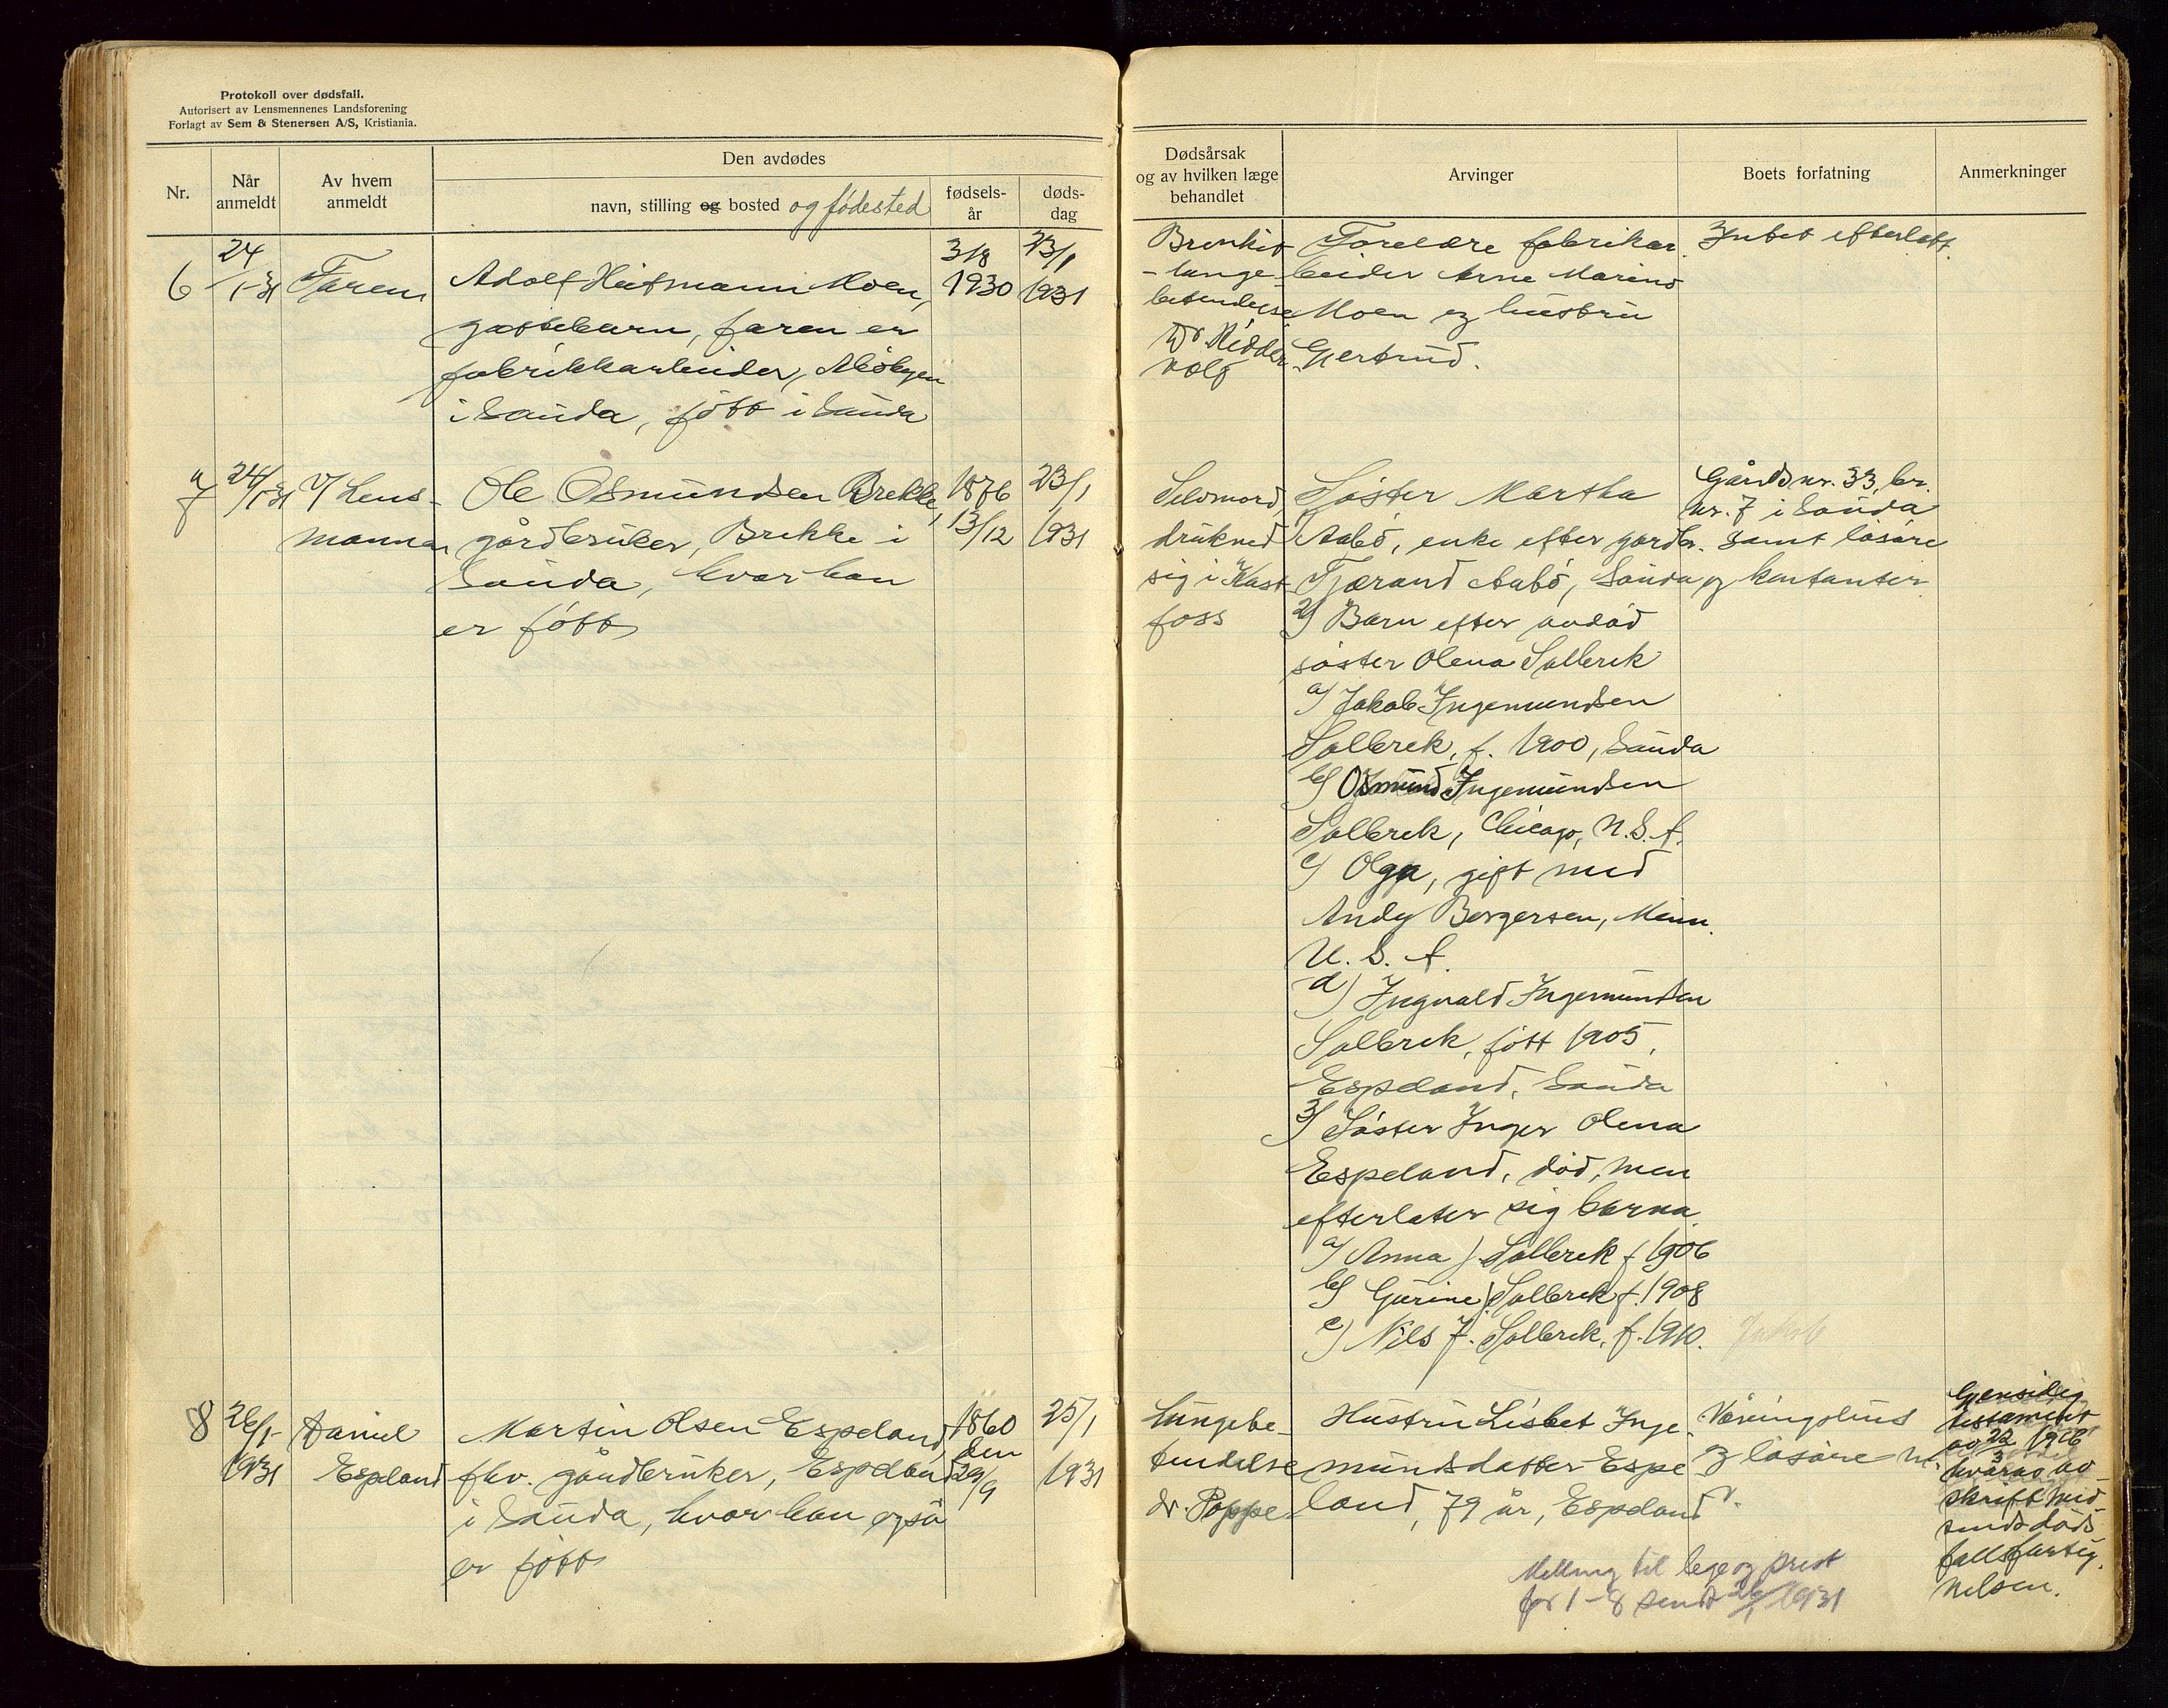 Protokoll over dødsfall.
Autorisert av Lensmennenes Landsforening
Forlagt av Sem & Stenersen A/S, Kristiania.
Nr.
Når anmeldt
Av hvem anmeldt
Den avdødes
navn, stilling og bosted og fødested
fødsels-år
døds-dag
Dødsårsak og av hvilken læge behandlet
Arvinger
Boets forfatning
Anmerkninger
6
24/1-31
Faren
Adolf Hartmann Moen,
gossebarn, faren er
fabrikkarbeider, Åbøbyen
i Sauda, født i Sauda
3/8
1930
23/1
1931
Bronkit
- lunge-
betendelse
Dr Ridder-
vold
Foreldre fabrikar-
beider Arne Marino
Moen og hustru
Gjertrud.
Intet efterlatt.
7
24/1-31
V/ Lens-
mannen
Ole Osmundsen Brekke,
gårdbruker, Brekke i
Sauda, hvor han
er født
1876
13/12
23/1
1931
Selvmord,
drukned
sig i
foss
1) Søster Martha
Aabø, enke efter gårdbr.
Tjærand Aabø, Sauda
2) Barn efter avdød
søster Olena Solbrek
a) Jakob Ingemundsen
Solbrek, f. 1900, Sauda
b) Osmund Ingemundsen
Solbrek, Chicago, U.S.A.
c) Olga, gift med
Andy Borgersen, Minn.
U. S. A.
d) Ingvald Ingemundsen
Solbrek, født 1905,
Espeland, Sauda
3) Søster Inger Olena
Espeland, død, men
efterlater sig barna
a) Anna J. Solbrek f 1906
b) Gurine J. Solbrek f. 1908
c) Nils J. Solbrek, f. 1910.
Jakob
Gårdsnr. 33, br.
nr. 7 i Sauda
samt løsøre
og kontanter
8
26/1-
1931
Daniel
Espeland
Martin Olsen Espeland,
fhv. gårdbruker, Espeland
i Sauda, hvor han også
er født
1860
den
29/9
25/1
1931
Lungebe-
tendelse
dr. Poppe
Hustru Lisbet Inge-
mundsdatter Espe-
land, 79 år, Espeland
Våningshus
og løsøre
Gjensidig
testament
av 22/3 1926
hvorav av-
skrift med-
sendt døds-
fallsforteg.
Nilsen.
Melding til lege og prest
for 1-8 sendt 26/1 1931